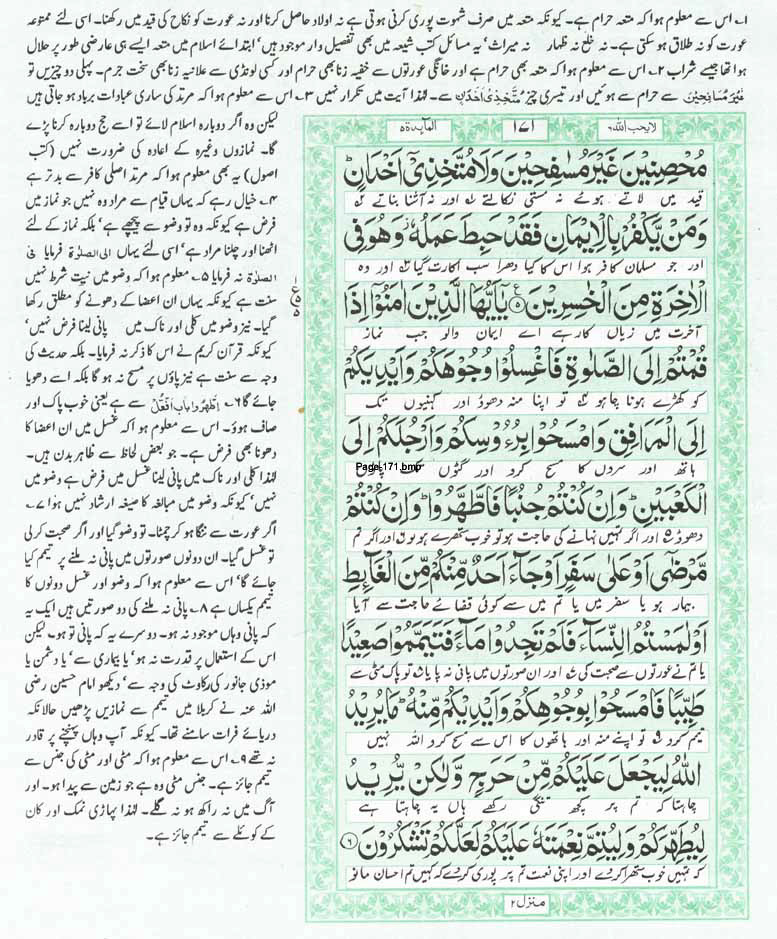 ۱؎ اس سے معلوم ہوا کہ متعہ حرام ہے۔ کیونکہ متعہ میں صرف شہوت پوری کرنی ہوتی ہے نہ اولاد حاصل کرنا اور نہ عورت کو نکاح کی قید میں رکھنا۔ اسی لئے ممتوعہ
عورت کو نہ طلاق ہو سکتی ہے۔ نہ خلع نہ ظہار نہ میراث' یہ مسائل کتب شیعہ میں بھی تفصیل وار موجود ہیں' ابتدائے اسلام میں متعہ ایسے ہی عارضی طور پر حلال
ہوا تھا جیسے شراب ۲؎ اس سے معلوم ہوا کہ متعہ بھی حرام ہے اور خانگی عورتوں سے خفیہ زنا بھی حرام اور کسی لونڈی سے علانیہ زنا بھی سخت جرم۔ پہلی دو چیزیں تو
غَيْرَ مُسَافِحِيْنَ سے حرام سے ہوئیں اور تیسری چیز مُتَّخِذِىْٓ اَخْدَانٍ سے۔ لہٰذا آیت میں تکرار نہیں ۳؎ اس سے معلوم ہوا کہ مرتد کی ساری عبادات برباد ہو جاتی ہیں
لیکن وہ اگر دوبارہ اسلام لائے تو اسے حج دوبارہ کرنا پڑے
گا۔ نمازوں وغیرہ کے اعادہ کی ضرورت نہیں (کتب
اصول) یہ بھی معلوم ہوا کہ مرتد اصلی کافر سے بدتر ہے
۴؎ خیال رہے کہ یہاں قیام سے مراد وہ نہیں جو نماز میں
فرض ہے کیونکہ وہ تو وضو سے پیچھے ہے' بلکہ نماز کے لئے
اٹھنا اور چلنا مراد ہے' اسی لئے یہاں الی الصلوٰۃ فرمایا فی
الصلوٰۃ نہ فرمایا ۵؎ معلوم ہوا کہ وضو میں نیت شرط نہیں
سنت ہے کیونکہ یہاں ان اعضا کے دھونے کو مطلق رکھا
گیا۔ نیز وضو میں کلی اور ناک میں پانی لینا فرض نہیں'
کیونکہ قرآن کریم نے اس کا ذکر نہ فرمایا۔ بلکہ حدیث کی
وجہ سے سنت ہے نیز پاؤں پر مسح نہ ہو گا بلکہ اسے دھویا
جائے گا ۶؎ اِطَّهَّرُوْا باب افعّل سے ہے یعنی خوب پاک اور
صاف ہوؤ۔ اس سے معلوم ہوا کہ غسل میں ان اعضا کا
دھونا بھی فرض ہے۔ جو بعض لحاظ سے ظاہر بدن ہیں۔
لہٰذا کلی اور ناک میں پانی لینا غسل میں فرض ہے وضو میں
نہیں' کیونکہ وضو میں مبالغہ کا صیغہ ارشاد نہیں ہوا ۷؎
اگر عورت سے ننگا ہو کر چمٹا۔ تو وضو گیا اور اگر صحبت کرلی
تو غسل گیا۔ ان دونوں صورتوں میں پانی نہ ملنے پر تیمم کیا
جائے گا' اس سے معلوم ہوا کہ وضو اور غسل دونوں کا
تیمم یکساں ہے ۸؎ پانی نہ ملنے کی دو صورتیں ہیں ایک یہ
کہ پانی وہاں موجود نہ ہو۔ دوسرے یہ کہ پانی تو ہو۔ لیکن
اس کے استعمال پر قدرت نہ ہو' یا بیماری سے' یا دشمن یا
موذی جانور کی رکاوٹ کی وجہ سے' دیکھو امام حسین رضی
اللہ عنہ نے کربلا میں تیمم سے نمازیں پڑھیں حالانکہ
دریائے فرات سامنے تھا۔ کیونکہ آپ وہاں پہنچنے پر قادر
نہ تھے ۹؎ اس سے معلوم ہوا کہ مٹی اور مٹی کی جنس سے
تیمم جائز ہے۔ جنس مٹی وہ ہے جو زمین سے پیدا ہو۔ اور
آگ میں نہ راکھ ہو نہ گلے۔ لہٰذا پہاڑی نمک اور کان
کے کوئلے سے تیمم جائز ہے۔
لا يحب الله ۶ ۱۷۱ المآئدة ۵
مُحْصِنِيْنَ غَيْرَ مُسٰفِحِيْنَ وَلَا مُتَّخِذِىْٓ اَخْدَانٍ
قید میں لاتے ہوئے نہ مستی نکالتے اور نہ آشنا بناتے
وَمَنْ يَّكْفُرْ بِالْاِيْمَانِ فَقَدْ حَبِطَ عَمَلُهٗ وَهُوَ فِى
اور جو مسلمان کافر ہوا اس کا کیا دھرا سب اکارت گیا اور وہ
الْاٰخِرَةِ مِنَ الْخٰسِرِيْنَ ۵ يٰٓاَيُّهَا الَّذِيْنَ اٰمَنُوْٓا اِذَا
آخرت میں زیاں کار ہے اے ایمان والو جب نماز
قُمْتُمْ اِلَى الصَّلٰوةِ فَاغْسِلُوْا وُجُوْهَكُمْ وَاَيْدِيَكُمْ
کو کھڑے ہونا چاہو تو اپنا منہ دھوؤ اور کہنیوں تک
اِلَى الْمَرَافِقِ وَامْسَحُوْا بِرُءُوْسِكُمْ وَاَرْجُلَكُمْ اِلَى
ہاتھ اور سروں کا مسح کرو اور گٹوں
Page-171.bmp
الْكَعْبَيْنِ وَاِنْ كُنْتُمْ جُنُبًا فَاطَّهَّرُوْا وَاِنْ كُنْتُمْ
دھوؤ اور اگر تمہیں نہانے کی حاجت ہو تو خوب ستھرے ہو لو اور اگر تم
مَّرْضٰٓى اَوْ عَلٰى سَفَرٍ اَوْ جَآءَ اَحَدٌ مِّنْكُمْ مِّنَ الْغَآئِطِ
بیمار ہو یا سفر میں یا تم میں سے کوئی قضائے حاجت سے آیا
اَوْ لٰمَسْتُمُ النِّسَآءَ فَلَمْ تَجِدُوْا مَآءً فَتَيَمَّمُوْا صَعِيْدًا
یا تم نے عورتوں سے صحبت کی اور ان صورتوں میں پانی نہ پایا تو پاک مٹی سے
طَيِّبًا فَامْسَحُوْا بِوُجُوْهِكُمْ وَاَيْدِيْكُمْ مِّنْهُ مَا يُرِيْدُ
تیمم کرو تو اپنے منہ اور ہاتھوں کا اس سے مسح کرو اللہ نہیں
اللّٰهُ لِيَجْعَلَ عَلَيْكُمْ مِّنْ حَرَجٍ وَّلٰكِنْ يُّرِيْدُ
چاہتا کہ تم پر کچھ تنگی رکھے ہاں یہ چاہتا ہے
لِيُطَهِّرَكُمْ وَلِيُتِمَّ نِعْمَتَهٗ عَلَيْكُمْ لَعَلَّكُمْ تَشْكُرُوْنَ ۶
کہ تمہیں خوب ستھرا کردے اور اپنی نعمت تم پر پوری کردے کہ کہیں تم احسان مانو
منزل ۲